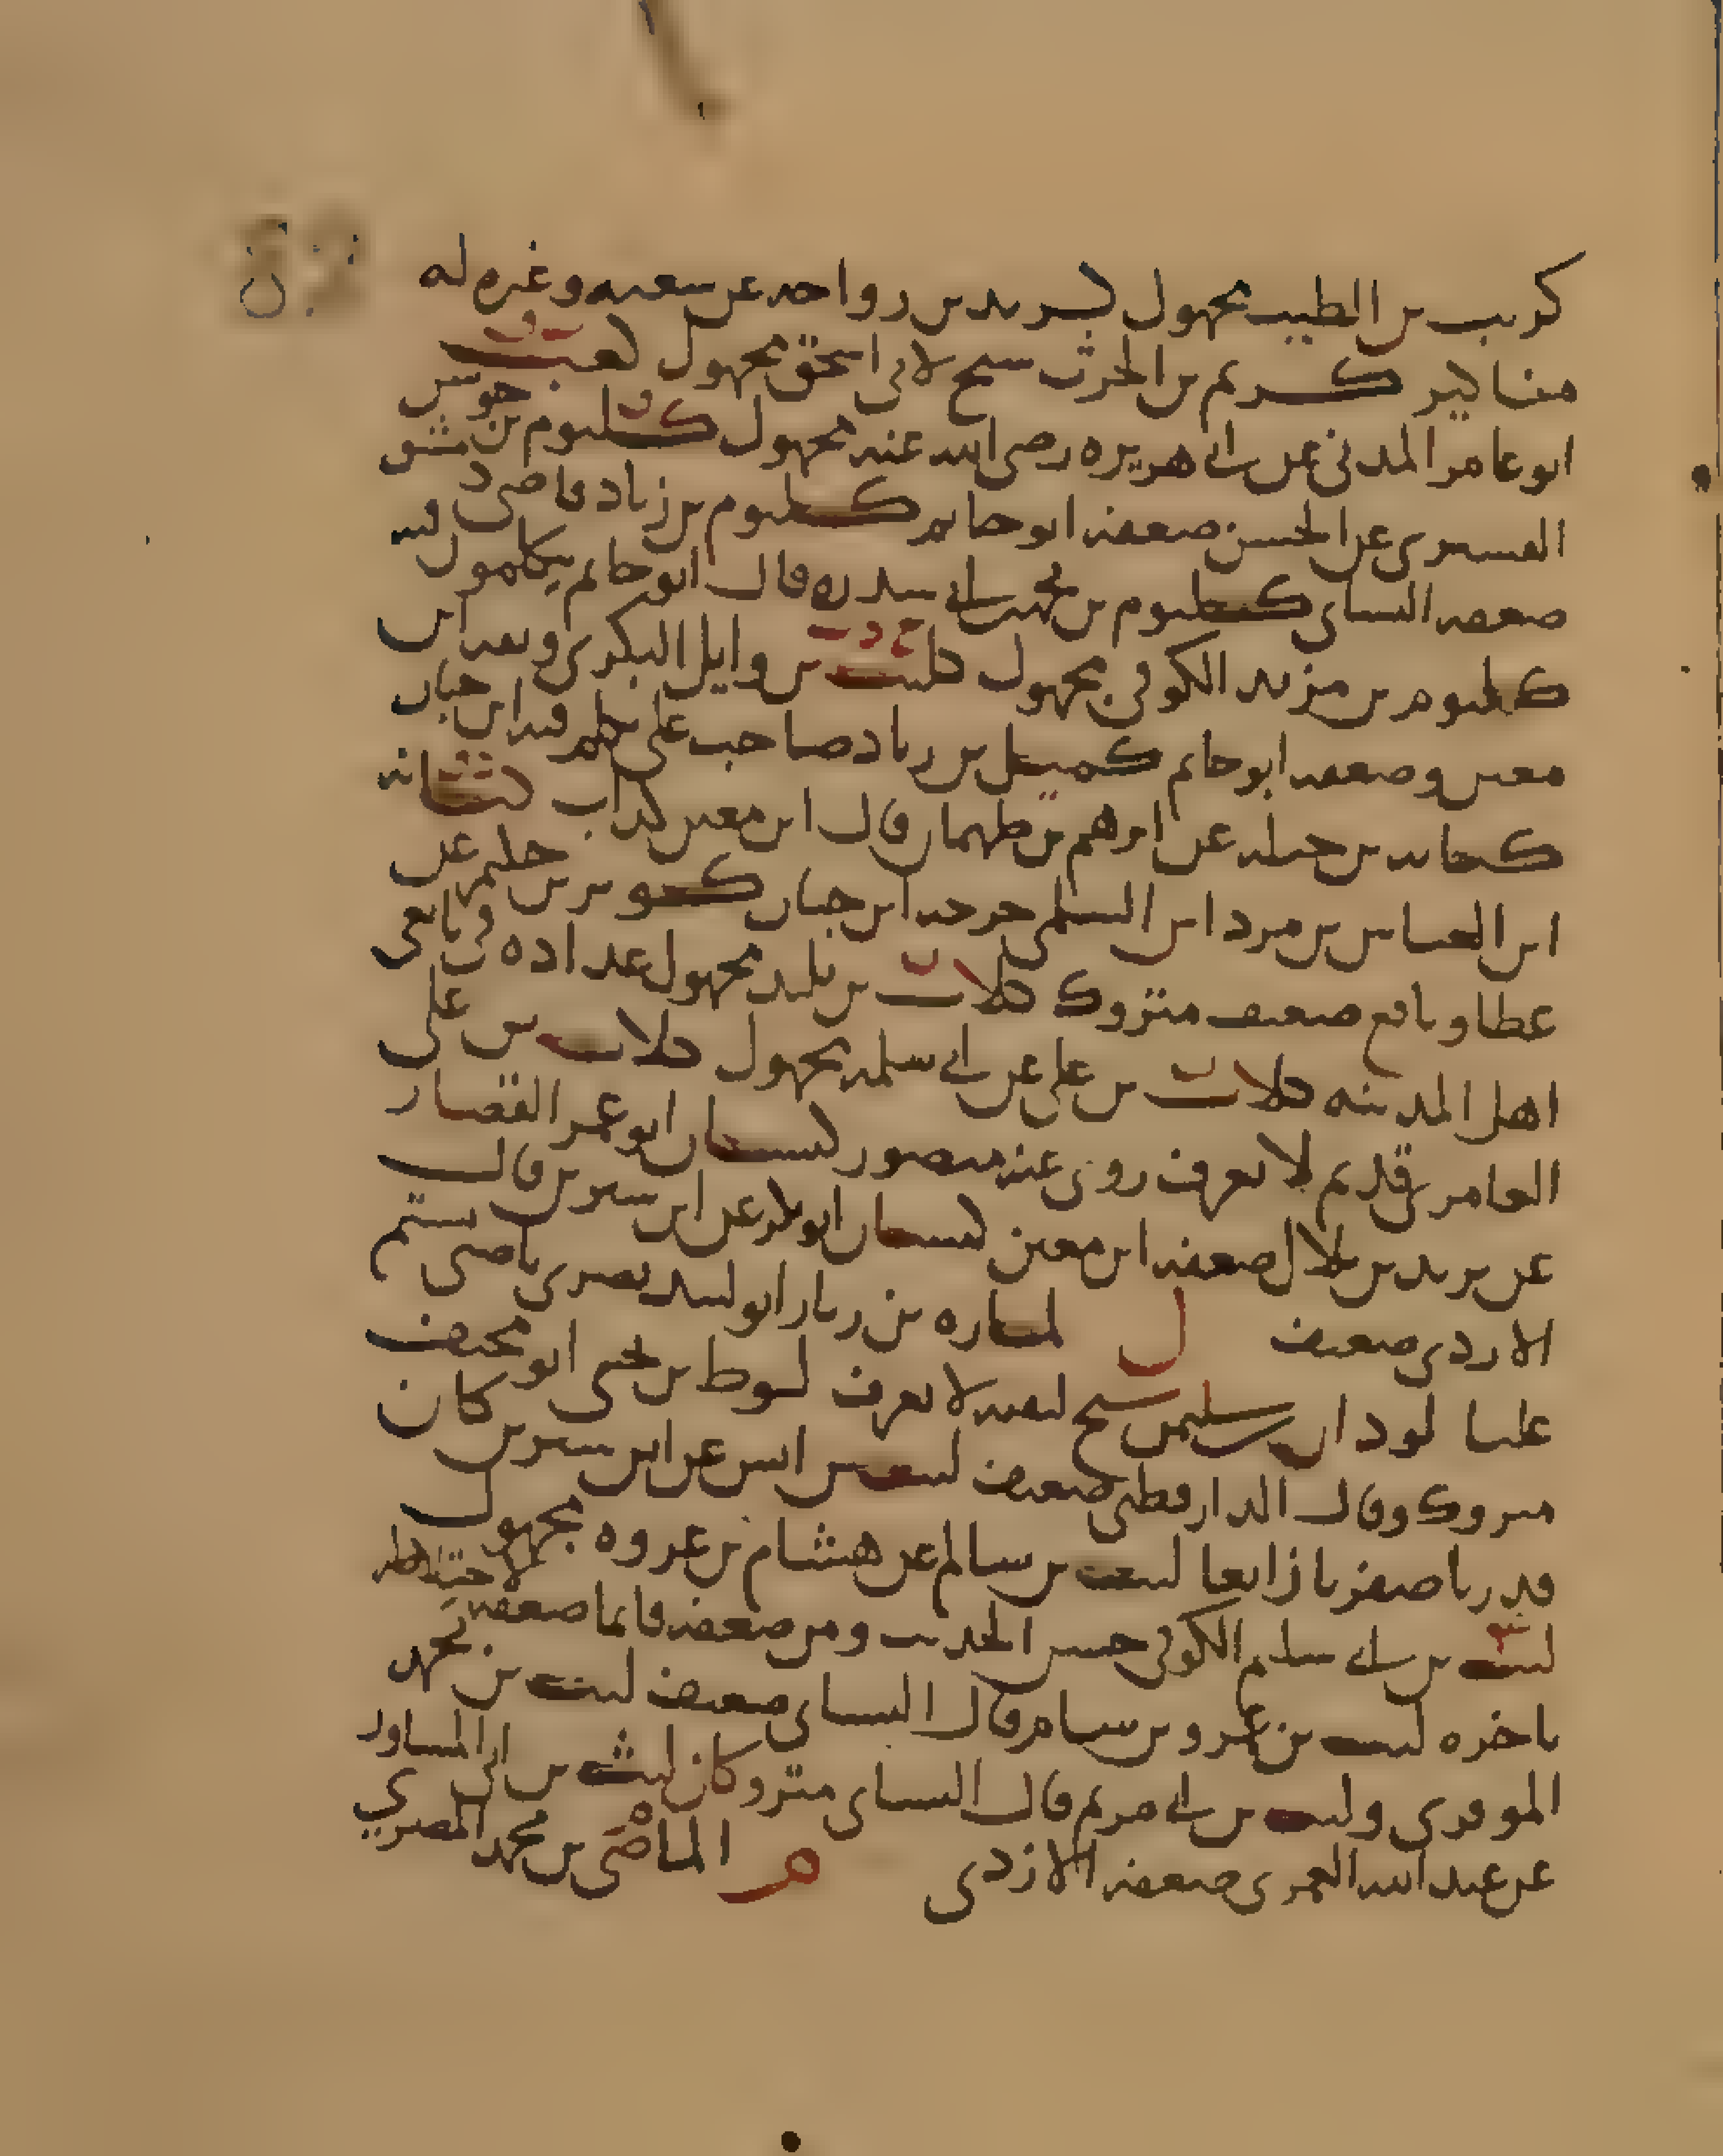 كريب بن الطيب مجهول كريد بن رواحه عن شعبه وغيره له
مناكير كريم بن الحرث شيخ لابي اسحق مجهول كعب
ابو عامر المدني عن ابي هريره رضي الله عنه مجهول كلثوم بن جوشن
القشيري عن الحسن ضعفه ابو حاتم كلثوم بن زياد قاضي دمشق
ضعفه النسائي كلثوم بن ابي سدره قال ابو حاتم يتكلمون فيه
كلثوم بن مزيد الكوفي مجهول كليب بن وايل البكري وثقه ابن
معين وضعفه ابو حاتم كميل بن زياد صاحب علي تكلم فيه ابن حبان
بن جبله عن ابرهيم بن طهمان قال ابن معين كذاب كنانه
ابن العباس بن مرداس السلمي جرحه ابن حبان كوثر بن حكيم عن
عطا ونافع ضعيف متروك كلاب بن تليد مجهول عداده في تابعي
اهل المدينه كلاب بن علي عن ابي سلمه مجهول كلاب بن علي
العامري قديم لا يعرف روى عنه منصور كيسان ابو عمر القصار
عن يزيد بن بلال ضعفه ابن معين كيسان ابو بكر عن ابن سيرين قال
الازدي ضعيف ل لمازه بن زبار ابو لبيد بصري ناصبي يشتم
عليا لوذان بن سليمن شيخ لبقيه لا يعرف لوط بن يحيى ابو مخنف
متروك وقال الدارقطني ضعيف ليث بن انس عن ابن سيرين كان
قدريا صفريا زائغا ليث بن سالم عن هشام بن عروه مجهول
ليث بن ابي سليم الكوفي حسن الحديث ومن ضعفه فانما ضعفه لاختلاطه
باخره ليث بن عمرو بن سام قال النسائي ضعيف ليث بن محمد
الموقري وليث بن ابي مريم قال النسائي متروكان ليث بن ابي المساور
عن عبد الله العمري ضعفه الازدي م الماضي بن محمد المصري